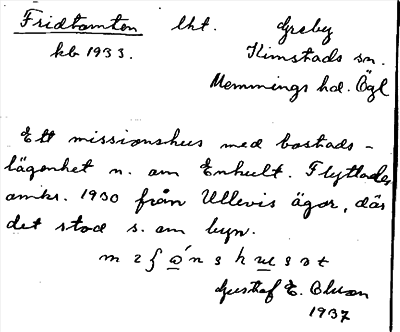 Fridtomten lht. Greby
kb 1933. Kimstads sn.
Memmings hd. Ögl
Ett missionshus med bostads-
lägenhet n. om Enhult. Flyttades
omkr. 1930 från Ullevis ägor, där
det stod s. om byn.
Gustaf E. Olson
1937